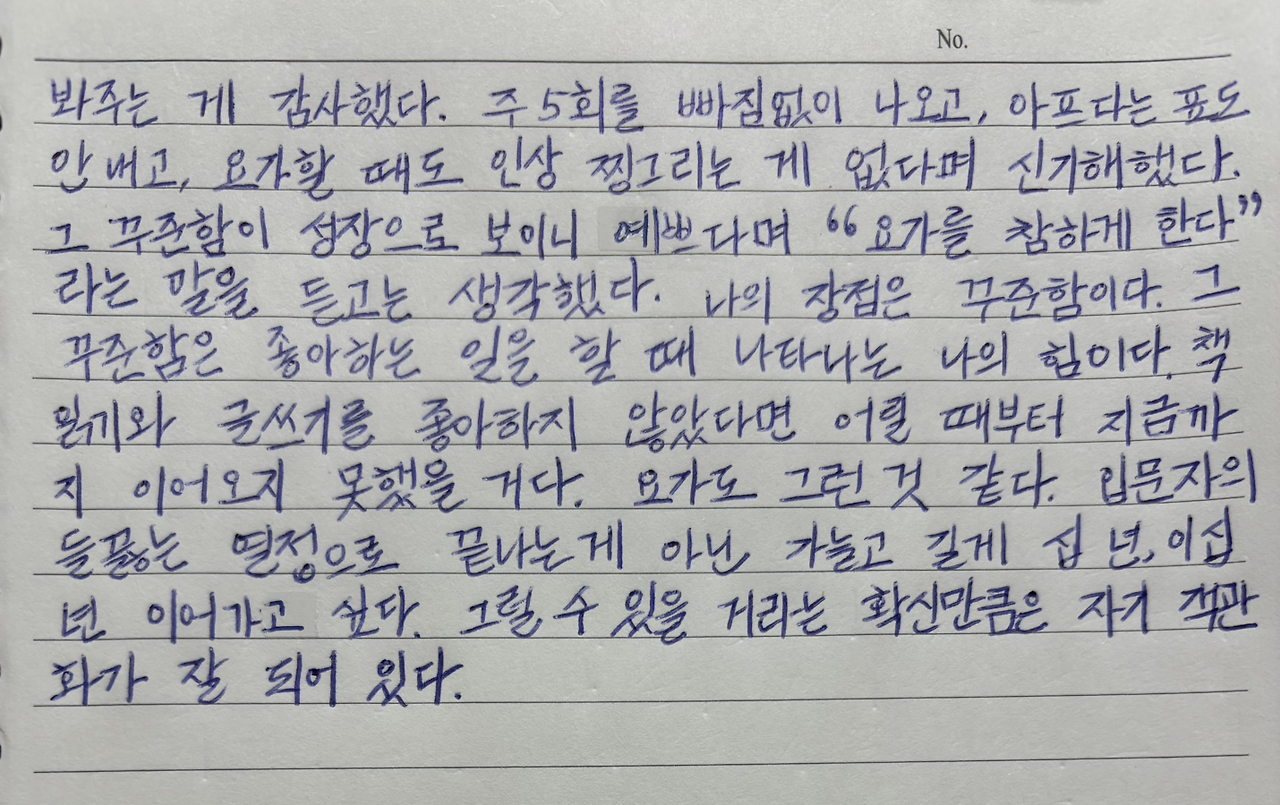 No.
봐주는 게 감사했다. 주 5회를 빠짐없이 나오고, 아프다는 표도
안 내고, 요가할 때도 인상 찡그리는 게 없다며 신기해했다.
그 꾸준함이 성장으로 보이니 예쁘다며 “요가를 참하게 한다”
라는 말을 듣고는 생각했다. 나의 장점은 꾸준함이다. 그
꾸준함은 좋아하는 일을 할 때 나타나는 나의 힘이다. 책
읽기와 글쓰기를 좋아하지 않았다면 어릴 때부터 지금까
지 이어오지 못했을 거다. 요가도 그런 것 같다. 입문자의
들끓는 열정으로 끝나는게 아닌, 가늘고 길게 십 년, 이십
년 이어가고 싶다. 그럴 수 있을 거라는 확신만큼은 자기 객관
화가 잘 되어 있다.